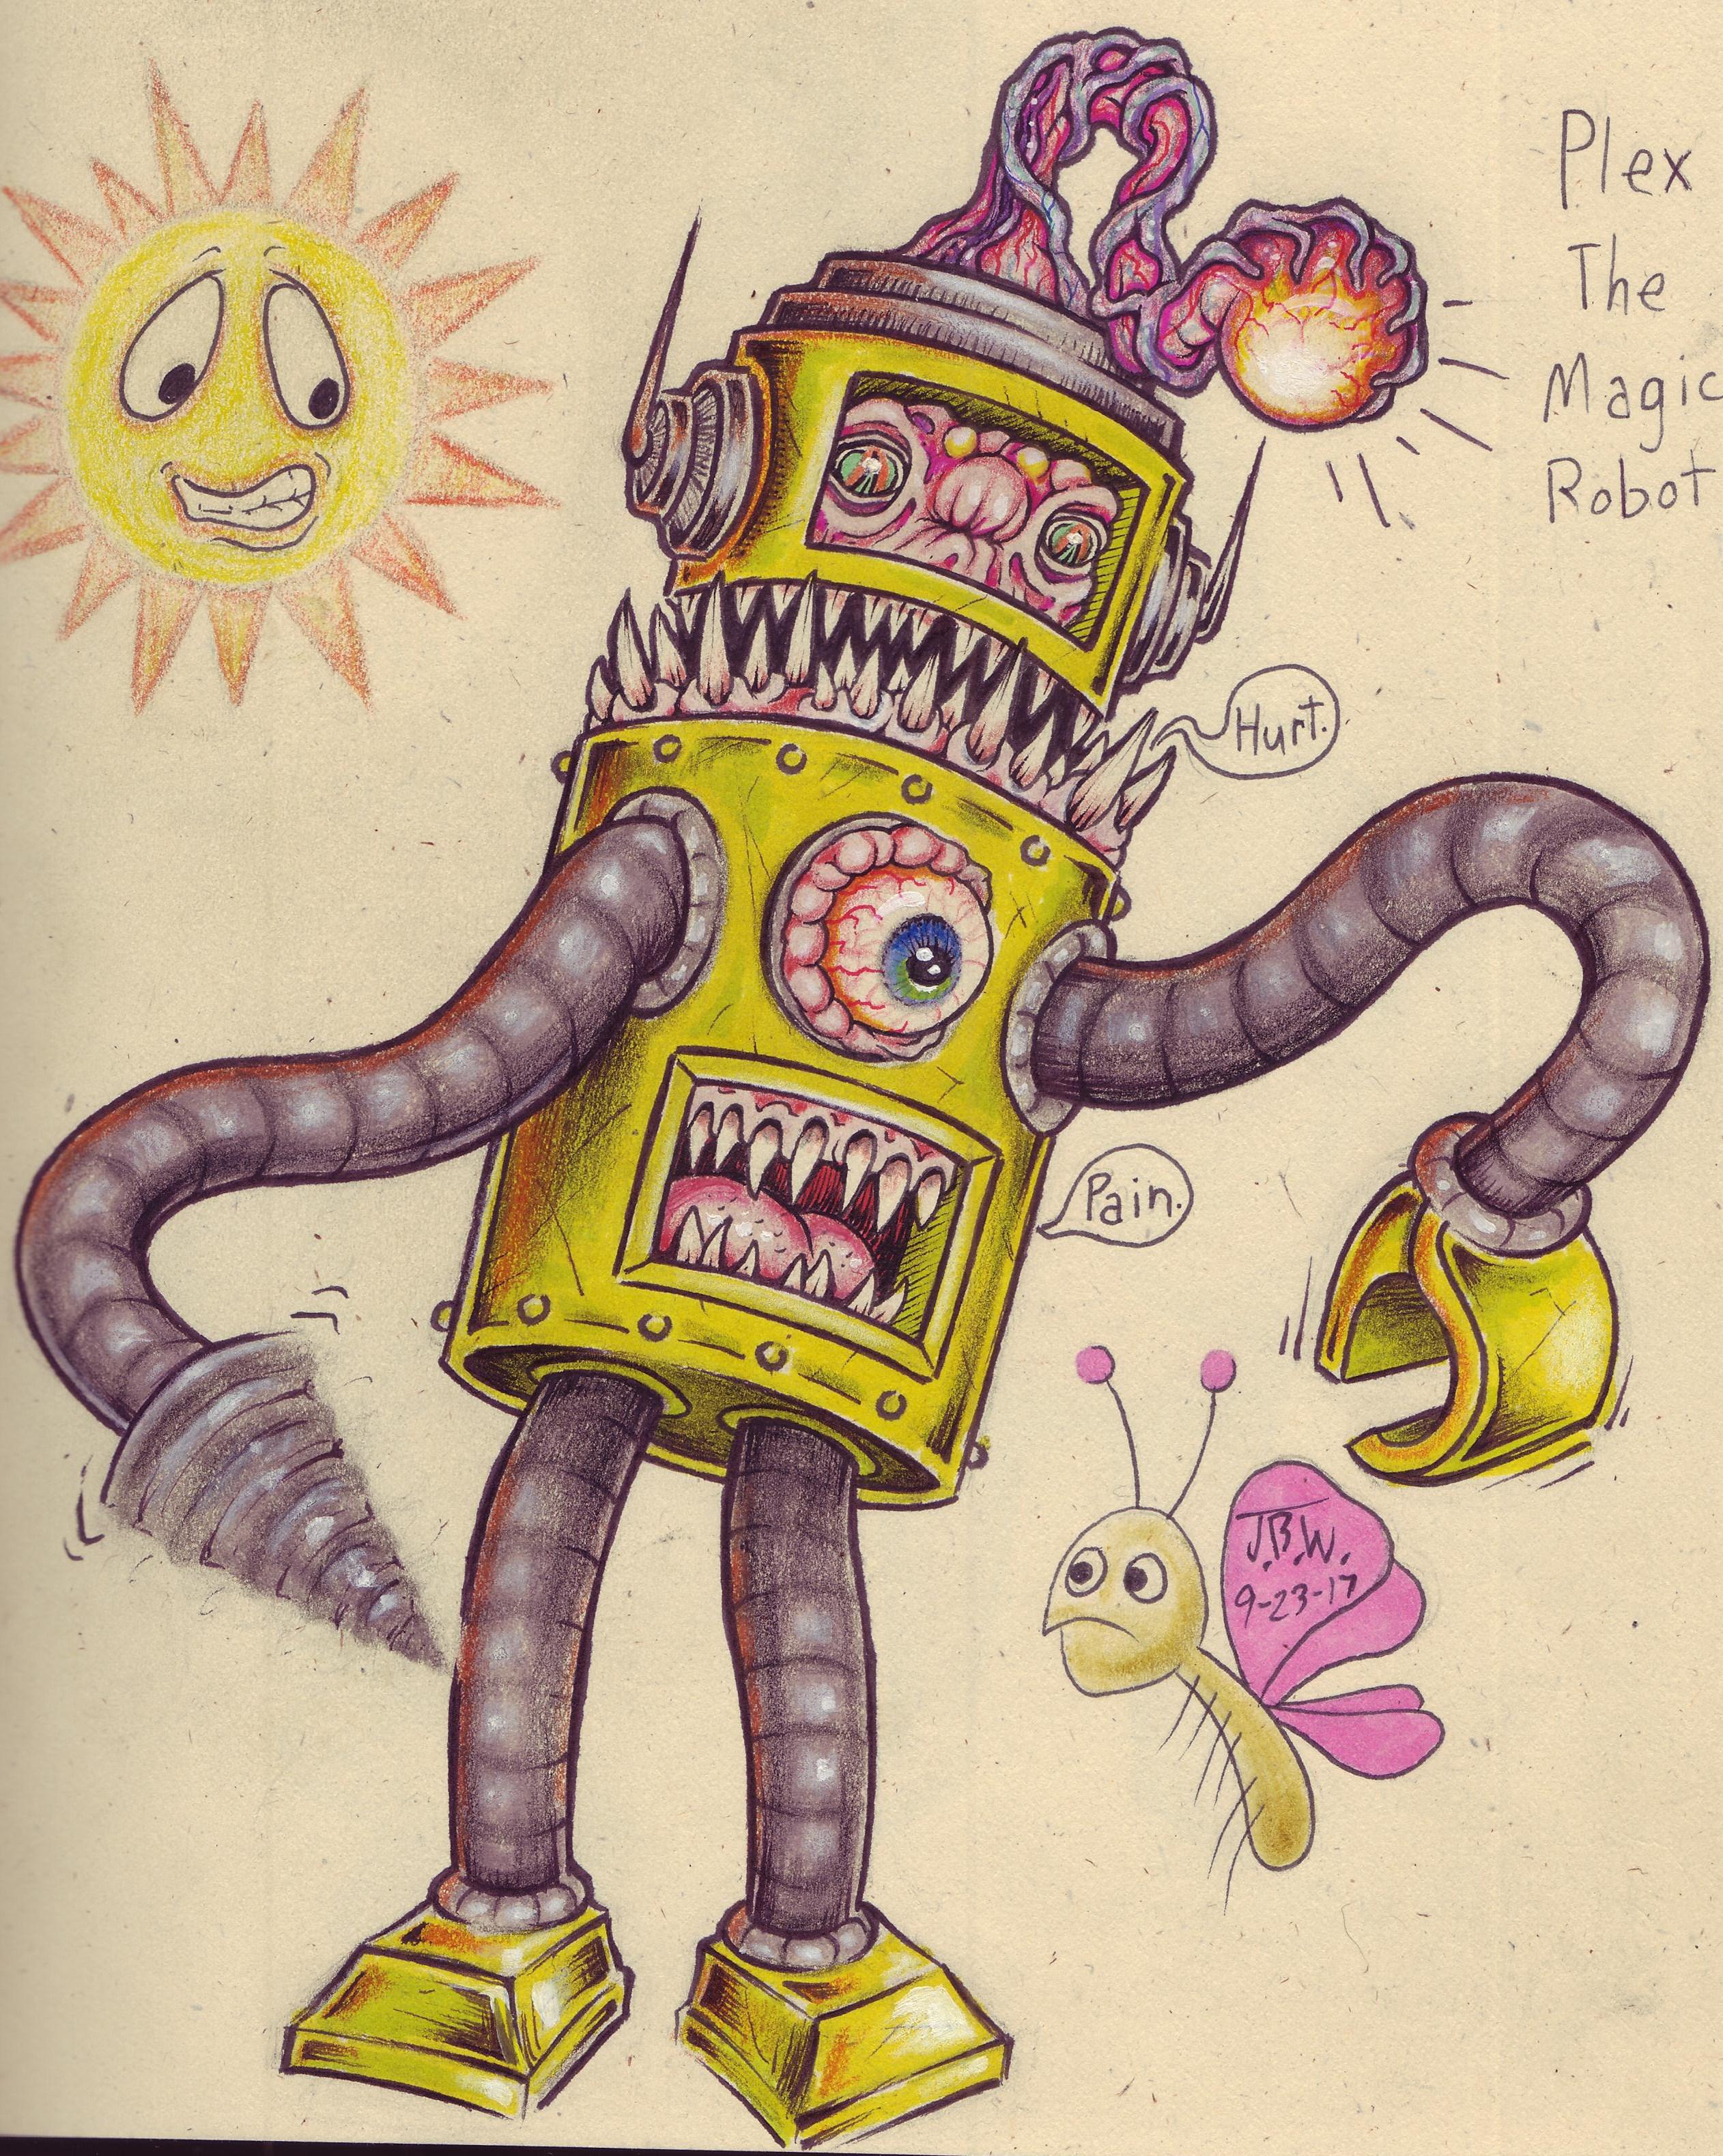 Plex
The
Magic
Robot
Hurt.
Pain.
J.B.W.
9-23-17